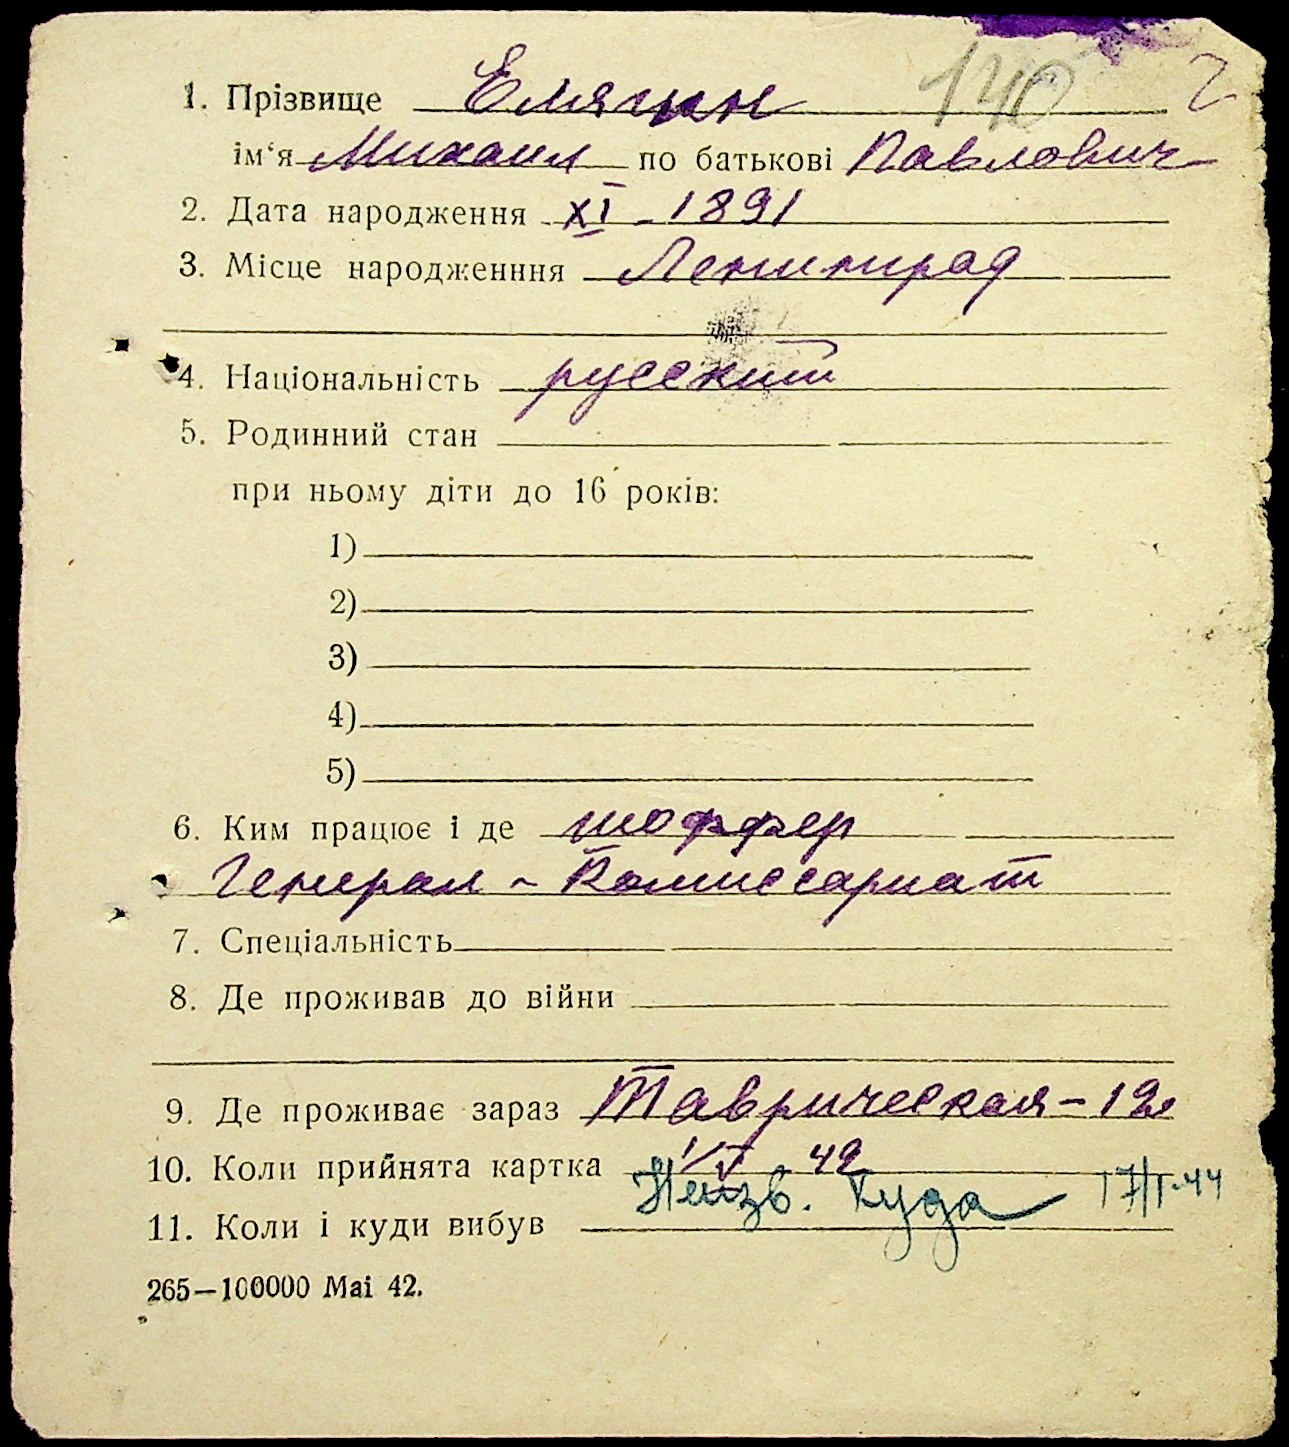 140 2
1. Прізвище Еляцин
ім‘я Михаил по батькові Павлович
2. Дата народження XI - 1891
3. Місце народженння Ленинград
4. Національність русский
5. Родинний стан
при ньому діти до 16 років:
1)
2)
3)
4)
5)
6. Ким працює і де шоффер
Генерал - Комиссариат
7. Спеціальність
8. Де проживав до війни
9. Де проживає зараз Таврическая - 12
10. Коли прийнята картка 1/V 42
11. Коли і куди вибув Неизв. куда
265—100000 Mai 42.